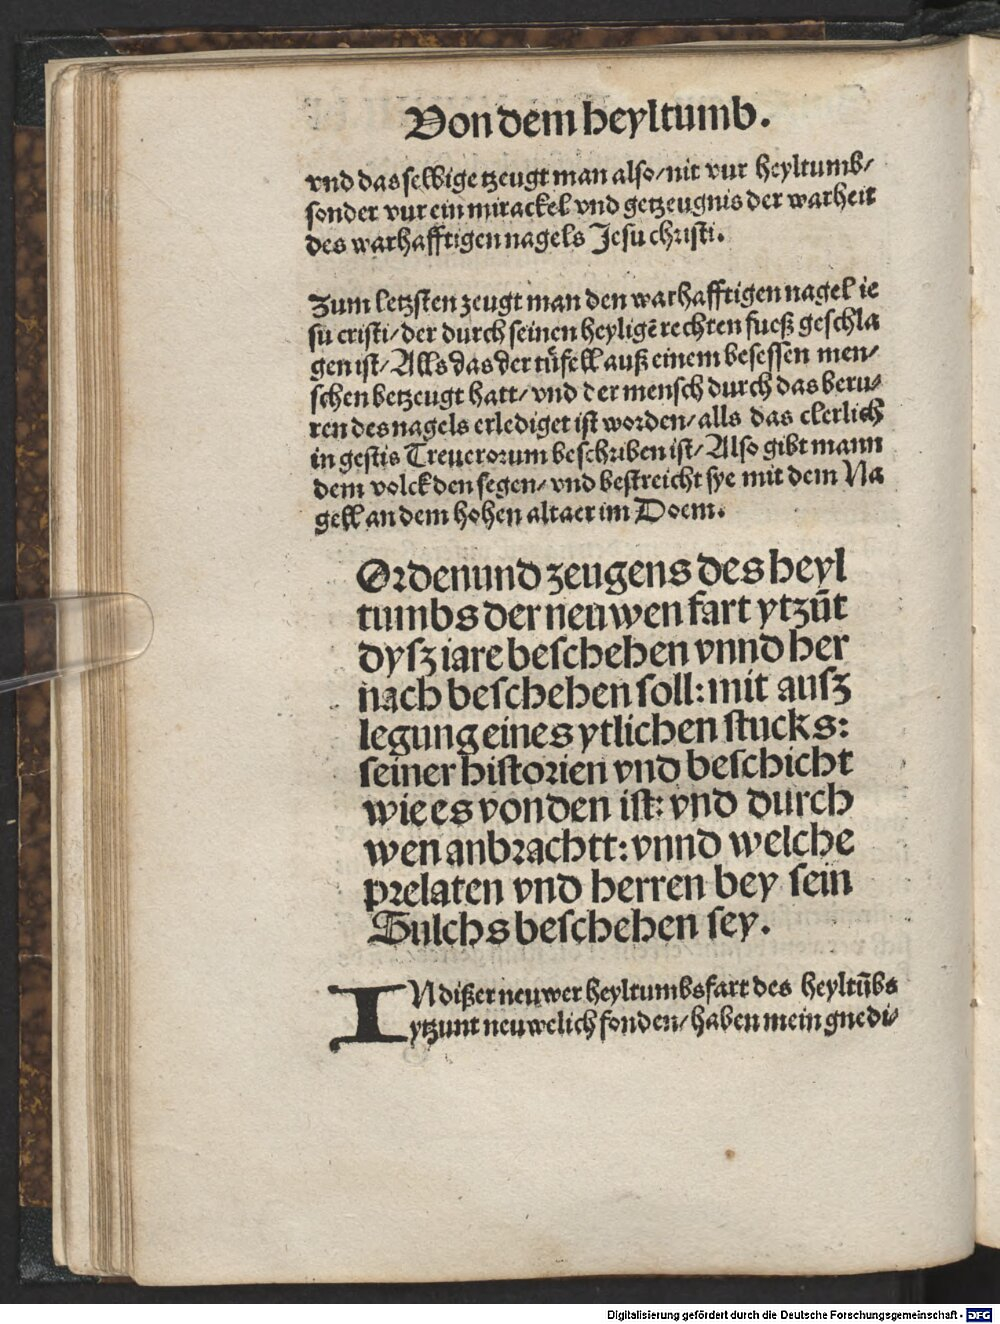 Von dem heyltumb.
vnd das selbige tzeugt man also/ nit vur heyltumb/
sonder vur ein mirackel vnd getzeugnis der warheit
des warhafftigen nagels Jesu christi.
Zum letzsten zeugt man den warhafftigen nagel ie
su cristi/ der durch seinen heyligē rechten fueß geschla
gen ist/ Alls das der tüfell auß einem besessen men/
schen betzeugt hatt/ vnd der mensch durch das beru/
ren des nagels erlediget ist worden/ alls das clerlich
in gestis Treuerorum beschriben ist/ Also gibt mann
dem volck den segen/ vnd bestreicht sye mit dem Na
gell an dem hohen altaer im Doem.
Ordenund zeugens des heyl
tumbs der neuwen fart ytzūt
dysz iare beschehen vnnd her
nach beschehen soll: mit ausz
legung eines ytlichen stucks:
seiner historien vnd beschicht
wie es vonden ist: vnd durch
wen anbrachtt: vnnd welche
prelaten vnd herren bey sein
Sulchs beschehen sey.
IN dißer neuwer heyltumbsfart des heyltūbs
ytzunt neuwelich fonden/ haben mein gnedi/
Digitalisierung gefördert durch die Deutsche Forschungsgemeinschaft - DFG